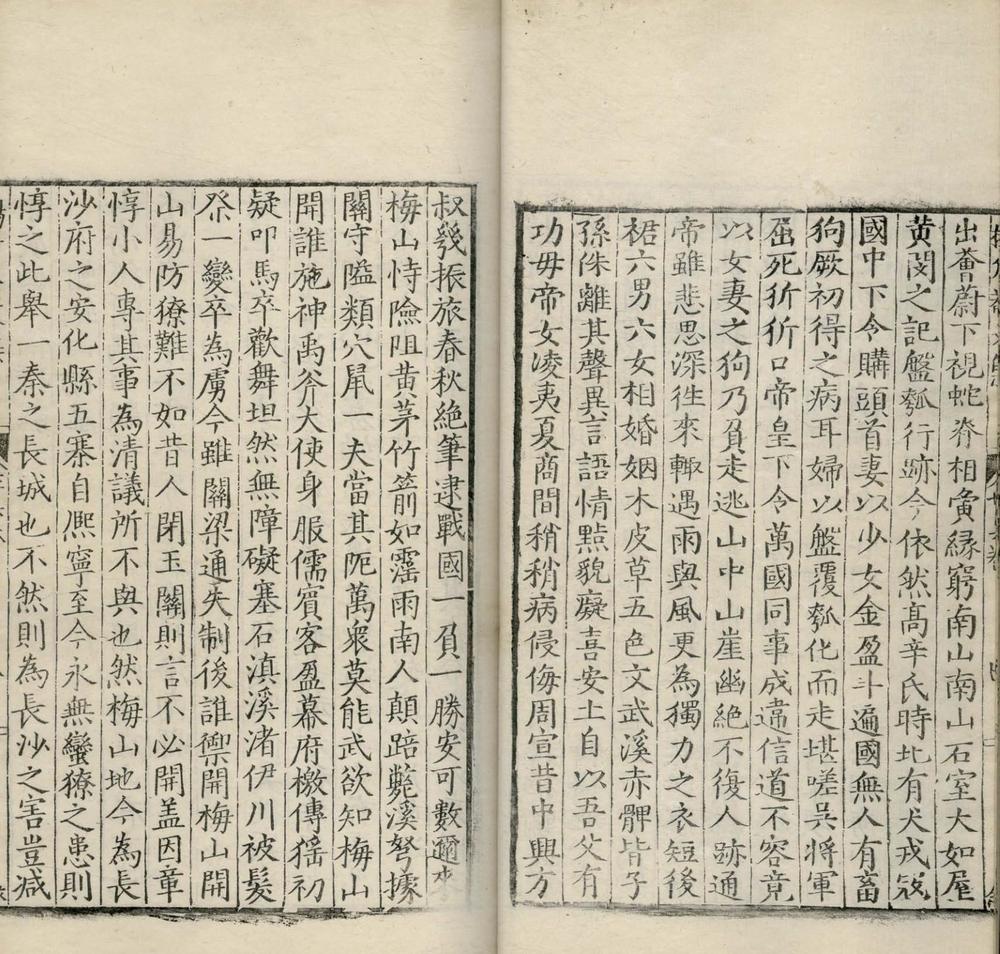 出薈蔚下視蛇脊相夤縁窮南山南山石室大如屋
黄閔之記盤瓠行跡今依然髙辛氏時北有犬戎㓂
國中下令購頭首妻以少女金盈斗遍國無人有畜
狗厥初得之病耳婦以盤覆瓠化而走堪嗟吴将軍
屈死折折口帝皇下令萬國同事成違信道不容竟
以女妻之狗乃負走逃山中山崖幽絶不復人跡通
帝雖悲思深徃來輙遇雨與風更為獨力之衣短後
裾六男六女相婚姻木皮草五色文武溪赤髀皆子
孫侏離其聲異言語情黠貌癡喜安土自以吾父有
功母帝女凌夷夏商間稍稍病侵侮周宣昔中興方
叔㡬振旅春秋絶筆逮戰國一負一勝安可數邇来
梅山恃險阻黄茅竹箭如𩆍雨南人顛踣斃溪弩據
關守隘類穴䑕一夫當其阨萬衆莫能武欲知梅山
開誰施神禹斧大使身服儒賓客盈幕府檄傳猺初
疑叩馬卒歡舞坦然無障礙塞石滇溪渚伊川被髮
祭一變卒為虜今雖關梁通失制後誰禦開梅山開
山易防獠難不如昔人閉玉關則言不必開盖因章
惇小人專其事為清議所不與也然梅山地今為長
沙府之安化縣五寨自熈寧至今永無蠻獠之患則
惇之此舉一秦之長城也不然則為長沙之害豈减